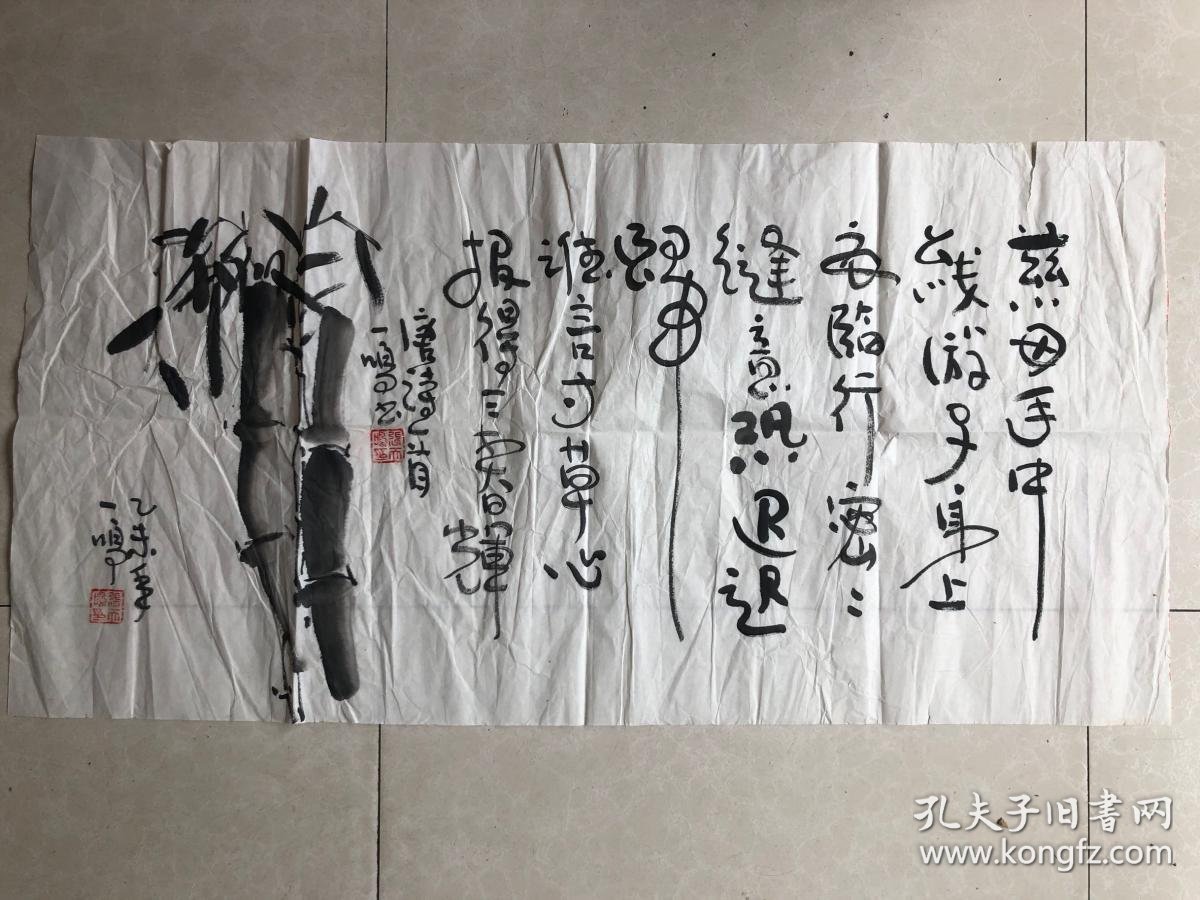 慈母手中
线游子身上
衣临行密:
缝意恐迟迟
归
谁言寸草心
报得三春輝
唐诗一首
一鸣书
乙未年
一鸣
孔夫子旧书网
www.kongfz.com